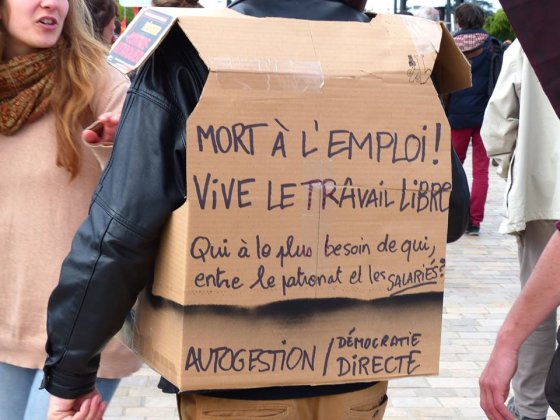 MORT À L'EMPLOI!
VIVE LE TRAVAIL LIBRE
Qui à le plus besoin de qui,
entre le patronat et les SALARIÉS?
AUTOGESTION / DÉMOCRATIE
DIRECTE